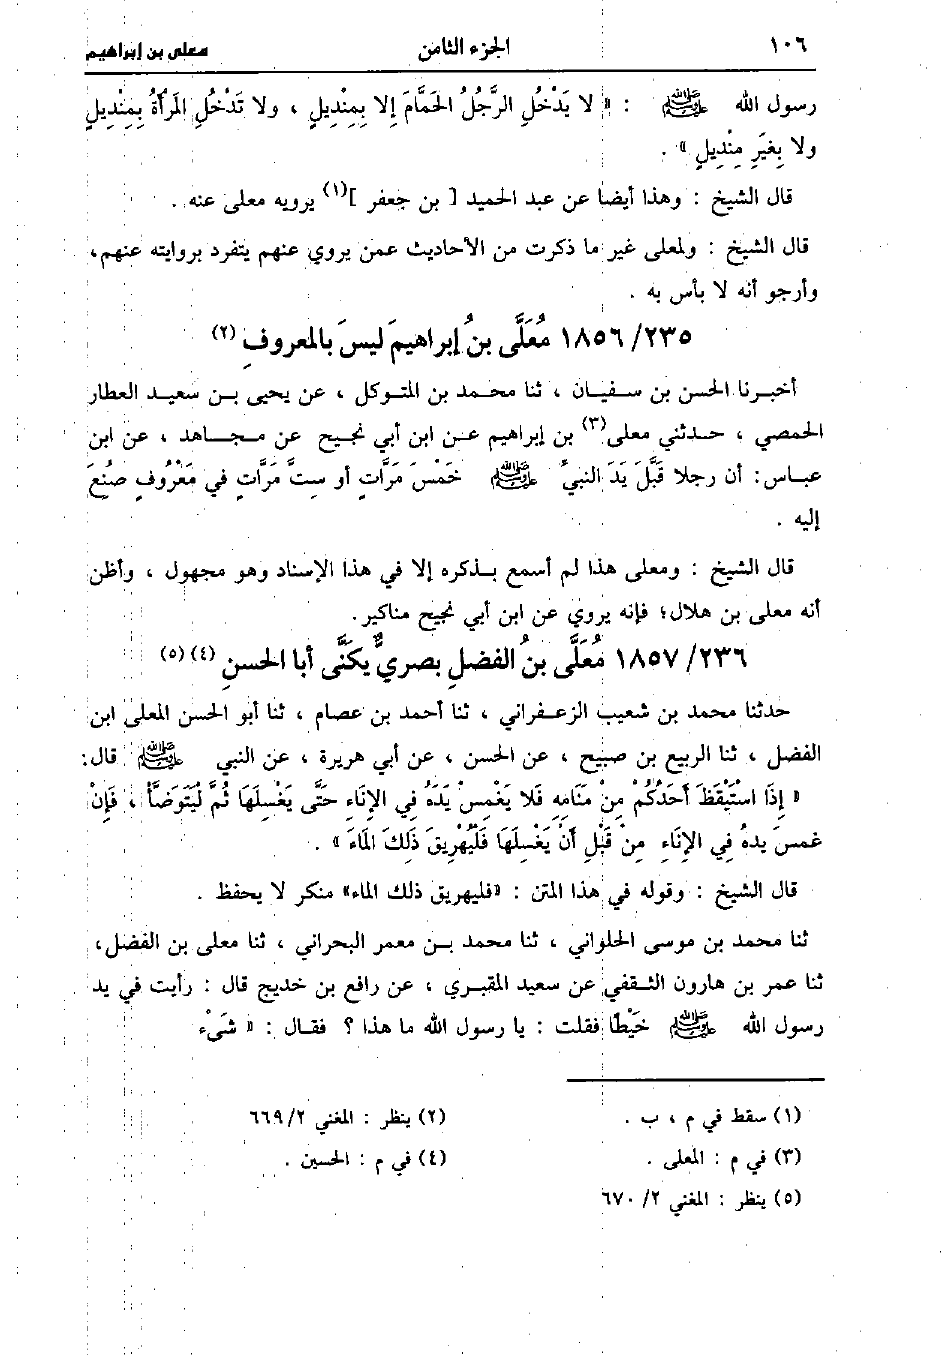 ١٠٦ الجزء الثامن معلى بن إبراهيم
رسول الله ﷺ : « لا يَدْخُلِ الرَّجُلُ الحَمَّامَ إلا بِمِنْدِيلٍ ، ولا تَدْخُلِ المَرْأَةُ بِمِنْدِيلٍ
ولا بِغَيرِ مِنْدِيلٍ » .
قال الشيخ : وهذا أيضا عن عبد الحميد [ بن جعفر ](١) يرويه معلى عنه .
قال الشيخ : ولمعلى غير ما ذكرت من الأحاديث عمن يروي عنهم يتفرد بروايته عنهم،
وأرجو أنه لا بأس به .
١٨٥٦/٢٣٥ مُعَلَّى بنُ إبراهيمَ ليسَ بالمعروفِ (٢)
أخبرنا الحسن بن سفيان ، ثنا محمد بن المتوكل ، عن يحيى بن سعيد العطار
الحمصي ، حدثني معلى(٣) بن إبراهيم عن ابن أبي نجيح عن مجاهد ، عن ابن
عباس: أن رجلا قَبَّلَ يَدَ النبيِّ ﷺ خَمْسَ مَرَّاتٍ أو سِتَّ مَرَّاتٍ في مَعْرُوفٍ صُنِعَ
إليه .
قال الشيخ : ومعلى هذا لم أسمع بذكره إلا في هذا الإسناد وهو مجهول ، وأظن
أنه معلى بن هلال؛ فإنه يروي عن ابن أبي نجيح مناكير.
١٨٥٧/٢٣٦ مُعَلَّى بنُ الفضلِ بصريٌّ يكَنَّى أبا الحسنِ (٤) (٥)
حدثنا محمد بن شعيب الزعفراني ، ثنا أحمد بن عصام ، ثنا أبو الحسن المعلى ابن
الفضل ، ثنا الربيع بن صبيح ، عن الحسن ، عن أبي هريرة ، عن النبي ﷺ قال:
« إِذَا اسْتَيْقَظَ أَحَدُكُمْ مِنْ مَنَامِهِ فَلا يَغْمِسْ يَدَهُ فِي الإِنَاءِ حَتَّى يَغْسِلَهَا ثُمَّ لْيَتَوَضَّأْ ، فَإِنْ
غمسَ يدهُ فِي الإِنَاءِ مِنْ قَبْلِ أَنْ يَغْسِلَهَا فَلْيُهْرِيقَ ذَلِكَ المَاءَ » .
قال الشيخ : وقوله في هذا المتن : «فليهريق ذلك الماء» منكر لا يحفظ .
ثنا محمد بن موسى الحلواني ، ثنا محمد بن معمر البحراني ، ثنا معلى بن الفضل،
ثنا عمر بن هارون الثقفي عن سعيد المقبري ، عن رافع بن خديج قال : رأيت في يد
رسول الله ﷺ خَيْطًا فقلت : يا رسول الله ما هذا ؟ فقال : « شَيْء
(١) سقط في م ، ب .
(٢) ينظر : المغني ٦٦٩/٢
(٣) في م : المعلى .
(٤) في م : الحسين .
(٥) ينظر : المغني ٦٧٠/٢